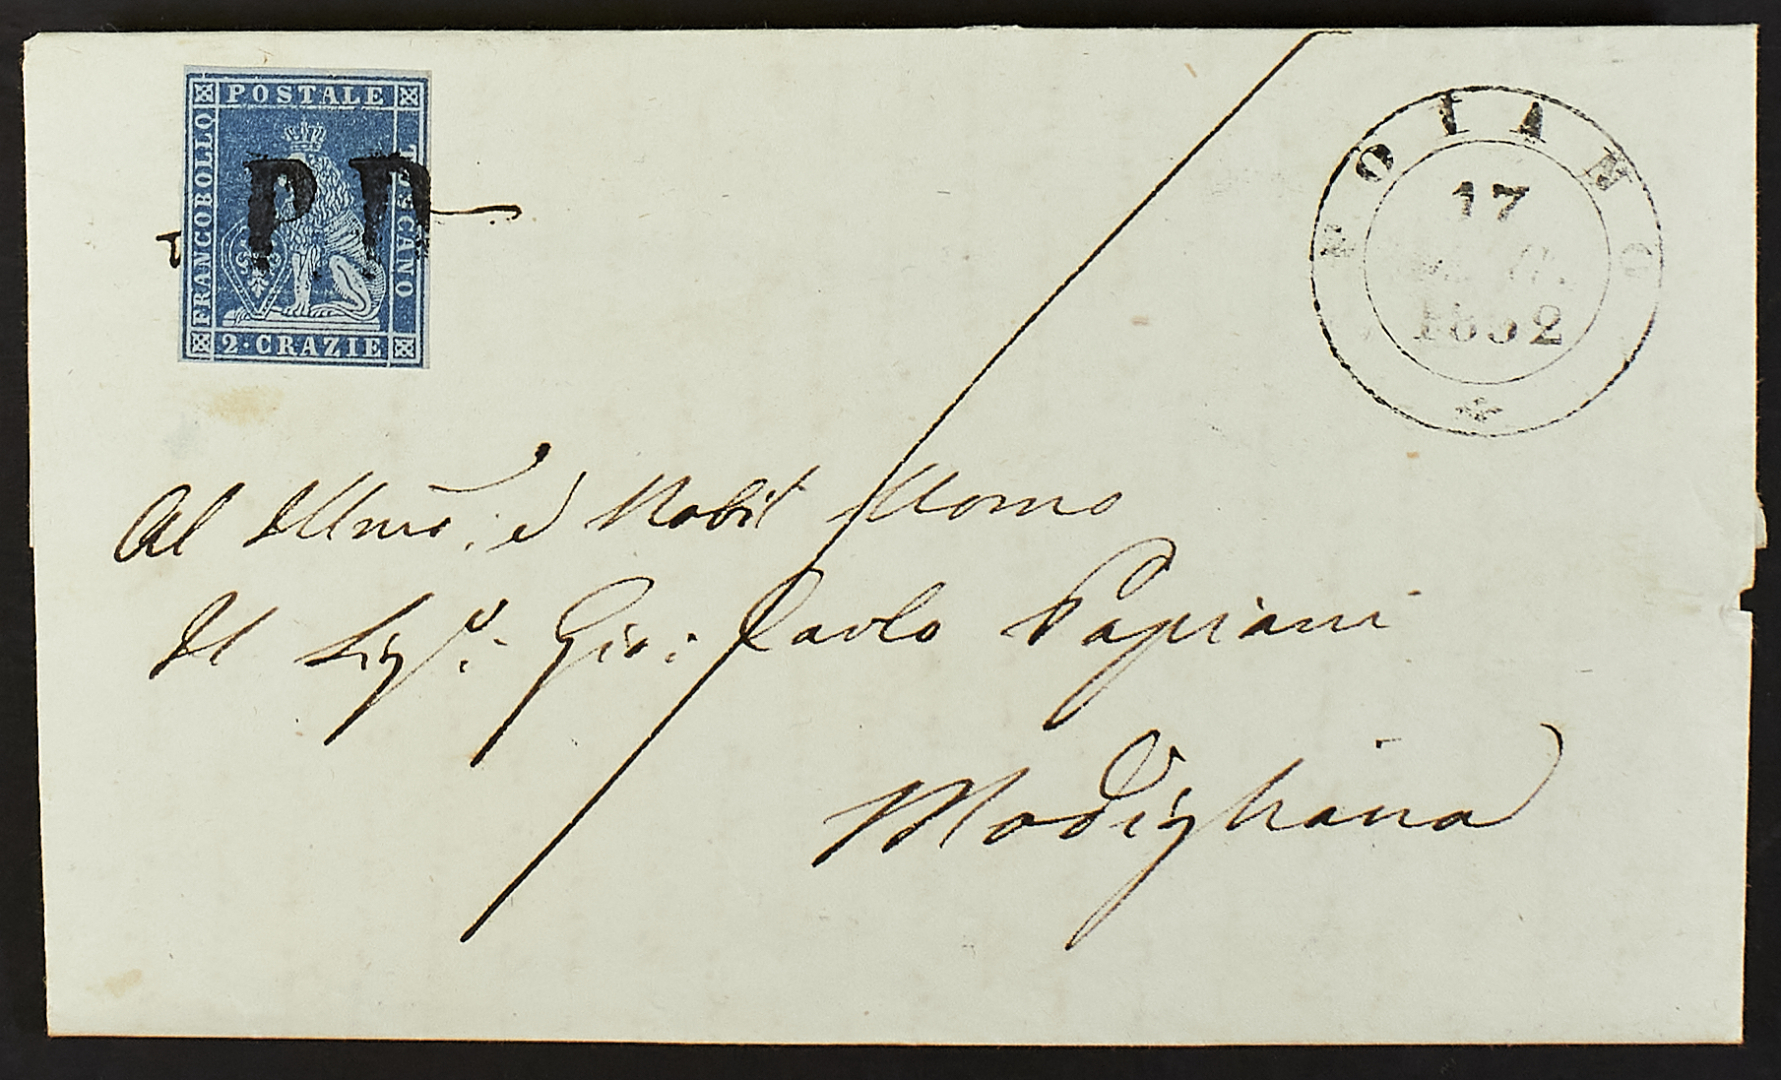 POSTALE
FRANCOBOLLO
TOSCANO
2·CRAZIE
P.D
FOIANO
17
1852
Al Illmo: e Nobil Uomo
Il Sigr: Gio: Paolo Papiani
Modigliana